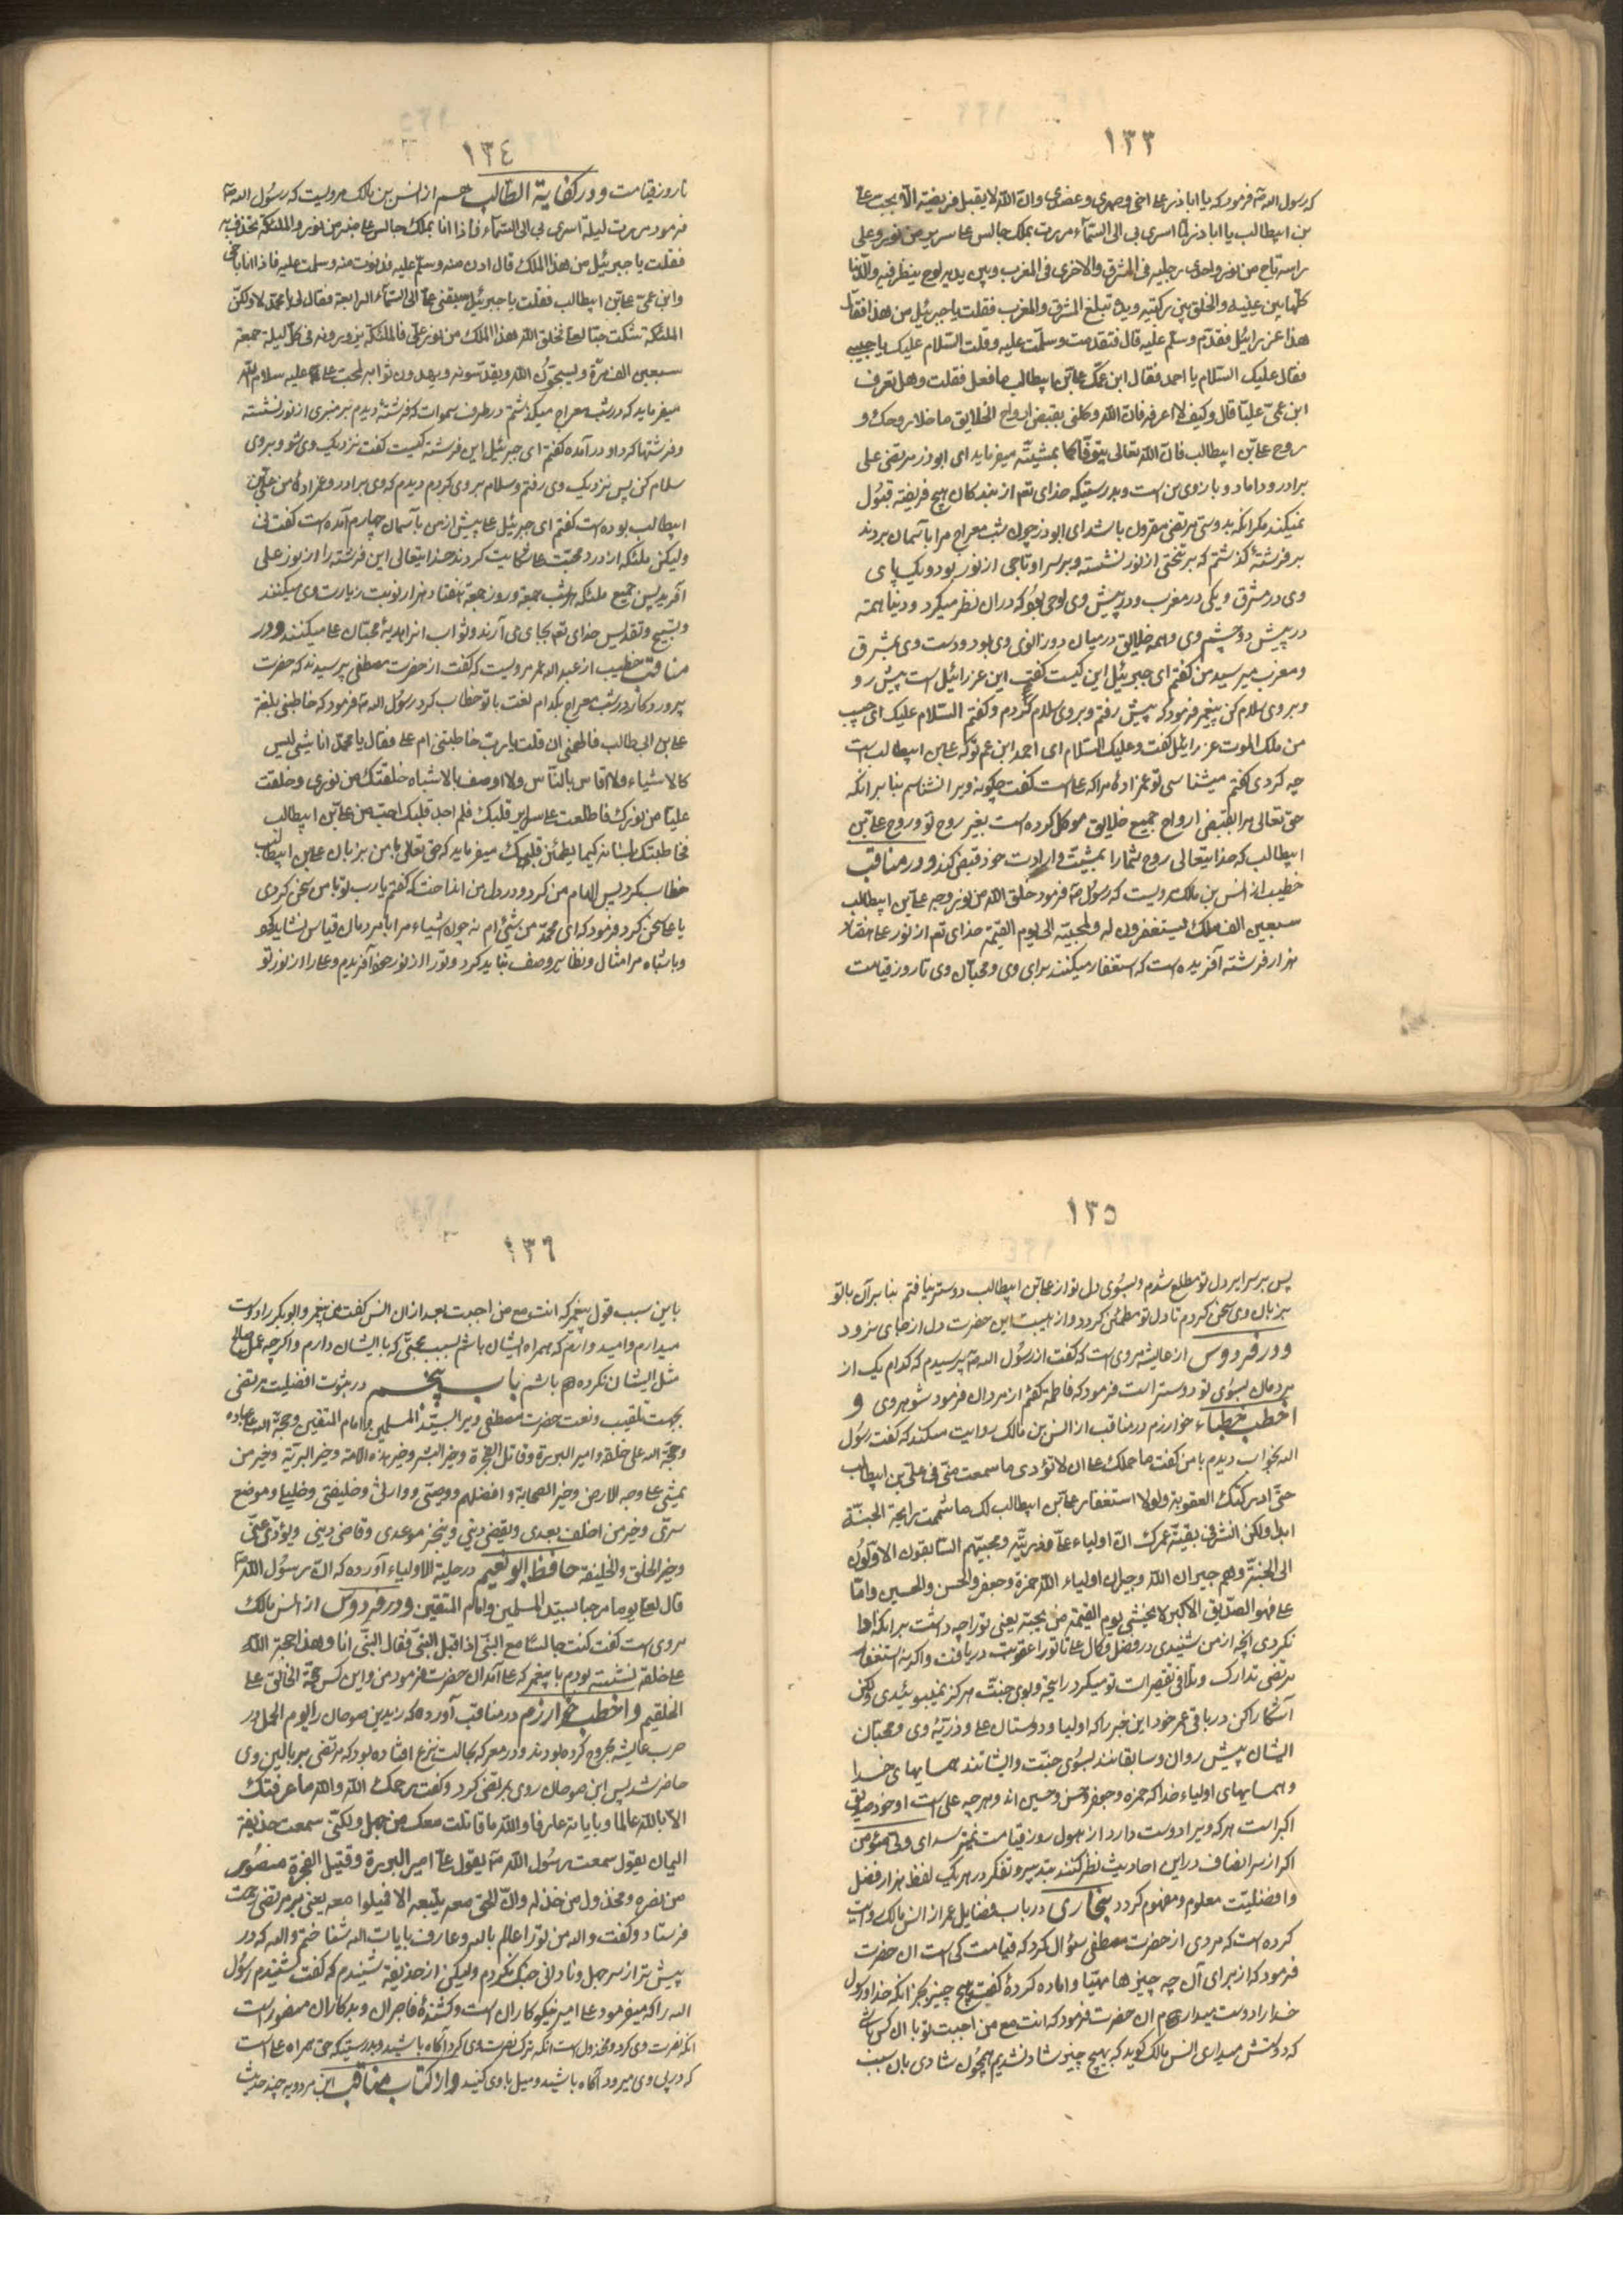 ١٣٣
که رسول الله ص فرمود که یا اباذر علی اخی و صهری و عضدی و ان الله لا یقبل فریضة الا بحب علی
بن ابیطالب یا اباذر لما اسری بی الی السماء مررت بملک جالس علی سریر من نور و علی
راسه تاج من نور واحدی رجلیه فی المشرق والاخری فی المغرب و بین یدیه لوح ینظر فیه والدنیا
کلها بین عینیه والخلق بین رکبتیه ویده تبلغ المشرق والمغرب فقلت یا جبرئیل من هذا فقال
هذا عزرائیل فقدم وسلم علیه قال فتقدمت وسلمت علیه وقلت السلام علیک یا حبیبی
فقال علیک السلام یا احمد فقال ابن عمک علی بن ابیطالب ما فعل فقلت وهل تعرف
ابن عمی علیا قال وکیف لا اعرفه فان الله وکلنی بقبض ارواح الخلایق ما خلا روحک و
روح علی بن ابیطالب فان الله تعالی یتوفاکما بمشیته میفرماید ای ابوذر مرتضی علی
برادر و داماد و بازوی من است و بدرستیکه خدای تعم از بندکان هیچ فریضه قبول
نمیکند مکر انکه بدوستی مرتضی مقرون باشد ای ابوذر چون شب معراج مرا باسمان بردند
بر فرشتهٔ کذشتم که بر تختی از نور نشسته و بر سر او تاجی از نور بود و یک پای
وی در مشرق و یکی در مغرب و در پیش وی لوحی بود که در ان نظر میکرد و دنیا همه
در پیش دو چشم وی و همه خلایق در میان دو زانوی وی بود و دست وی بمشرق
و مغرب میرسید من کفتم ای جبرئیل این کیست کفت این عزرائیل است پیش رو
و بر وی سلام کن پیغمبر فرمود که پیش رفتم و بر وی سلام کردم و کفتم السلام علیک ای حبیب
من ملک الموت عزرائیل کفت وعلیک السلام ای احمد ابن عم تو که علی بن ابیطالب است
چه کرد کفتم میشناسی تو عمزادهٔ مرا که علی است کفت چکونه ویرا نشناسم بنا برانکه
حق تعالی مرا بقبض ارواح جمیع خلایق موکل کرده است بغیر روح تو و روح علی بن
ابیطالب که خدایتعالی روح شما را بمشیت و ارادت خود قبض کند و در مناقب
خطیب از انس بن مالک مرویست که رسول ص فرمود خلق الله من نور وجه علی بن ابیطالب
سبعین الف ملک یستغفرون له ولمحبیه الی یوم القیمة خدای تعم از نور علی هفتاد
هزار فرشته آفریده است که استغفار میکنند برای وی و محبان وی تا روز قیامت
١٣٤
تا روز قیامت و در کفایة الطالب هم از انس بن مالک مرویست که رسول الله ص
فرمود مررت لیلة اسری بی الی السماء فاذا انا بملک جالس علی منبر من نور والملئکة تحدق به
فقلت یا جبرئیل من هذا الملک قال ادن منه وسلم علیه فدنوت منه وسلمت علیه فاذا انا باخی
وابن عمی علی بن ابیطالب فقلت یا جبرئیل سبقنی علی الی السماء الرابعة فقال لی یا محمد لا ولکن
الملئکة شکت حبها لعلی فخلق الله هذا الملک من نور علی فالملئکة یزورونه فی کل لیلة جمعة
سبعین الف مرة ویسبحون الله ویقدسونه ویهدون ثوابه لمحب علی علیه سلام الله
میفرماید که در شب معراج میکذشتم در طرف سموات که فرشتهٔ دیدم بر منبری از نور نشسته
و فرشتها کرد او درآمده کفتم ای جبرئیل این فرشته کیست کفت نزدیک وی شو و بر وی
سلام کن پس نزدیک وی رفتم و سلام بر وی کردم دیدم که وی برادر و عمزادهٔ من علی بن
ابیطالب بوده است کفتم ای جبرئیل علی پیش از من باسمان چهارم آمده است کفت نی
ولیکن ملئکه از درد محبت علی شکایت کردند خدایتعالی این فرشته را از نور علی
آفرید پس جمیع ملئکه هر شب جمعه و روز جمعه هفتاد هزار نوبت زیارت وی میکنند
و تسبیح و تقدیس خدای تعم بجای می آرند و ثواب انرا هدیهٔ محبان علی میکنند و در
مناقب خطیب از عبدالله عمر مرویست که کفت از حضرت مصطفی پرسیدند که حضرت
پروردکار در شب معراج بکدام لغت با تو خطاب کرد رسول الله ص فرمود که خاطبنی بلغة
علی بن ابی طالب فالهمنی ان قلت یا رب خاطبتنی ام علی فقال یا محمد انا شیء لیس
کالاشیاء ولا اقاس بالناس ولا اوصف بالاشباه خلقتک من نوری وخلقت
علیا من نورک فاطلعت علی سرایر قلبک فلم اجد قلبک احب من علی بن ابیطالب
فخاطبتک بلسانه کیما یطمئن قلبک میفرماید که حق تعالی با من بزبان علی بن ابیطالب
خطاب کرد پس الهام من کرد و در دل من انداخت که کفتم یا رب تو با من سخن کردی
یا علی سخن کرد فرمود که ای محمد من شیئی ام نه چون اشیاء مرا با مردمان قیاس نشاید کرد
و باشباه مرا امثال و نظایر وصف نباید کرد و تو را از نور خود آفریدم و علی را از نور تو
١٣٥
پس بر سرایر دل تو مطلع شدم و بسوی دل تو از علی بن ابیطالب دوستر نیافتم بنا بران با تو
بزبان وی سخن کردم تا دل تو مطمئن کردد و از هیبت این حضرت دل از جای نرود
و در فردوس از عایشه مروی است که کفت از رسول الله ص پرسیدم که کدام یک از
مردمان بسوی تو دوستر است فرمود که فاطمه کفتم از مردان فرمود شوهر وی و
اخطب خطباء خوارزم در مناقب از انس بن مالک روایت میکند که کفت رسول
الله بخواب دیدم با من کفت ما حملک علی ان لا تؤدی ما سمعت منی فی علی بن ابیطالب
حتی ادرکتک العقوبة ولولا استغفار علی بن ابیطالب لک ما شممت رایحة الجنة
ابدا ولکن انشر فی بقیة عمرک ان اولیاء علی وذریته ومحبیهم السابقون الاولون
الی الجنة وهم جیران الله وجیران اولیاء الله حمزة وجعفر والحسن والحسین واما
علی فهو الصدیق الاکبر لا یخشی یوم القیمة من یحبه یعنی تو را چه داشت بر انکه ادا
نکردی انچه از من شنیدی در فضل و کمال علی تا تو را عقوبت دریافت و اکر نه استغفار
مرتضی تدارک و تلافی تقصیرات تو میکرد رایحه و بوی جنت هرکز نمیبوئیدی ولکن
آشکارا کن در باقی عمر خود این خبر را که اولیا و دوستان علی و ذریهٔ وی و محبان
ایشان پیش روان و سابقانند بسوی جنت و ایشانند همسایهای خدا
و همسایهای اولیاء خدا که حمزه و جعفر و حسن و حسین اند و هر چه علی است او خود صدیق
اکبر است هر که ویرا دوست دارد از هول روز قیامت نمیترسد ای ولی مؤمن
اکر از سر انصاف در این احادیث نظر کنند بتدبر و تفکر در هر یک لفظ هزار فضل
و افضلیت معلوم و مفهوم کردد بخاری در باب فضایل عمر از انس مالک روایت
کرده است که مردی از حضرت مصطفی سؤال کرد که قیامت کی است ان حضرت
فرمود که از برای آن چه چیزها مهیا و اماده کردهٔ کفت هیچ چیز بجز انکه خدا و رسول
خدا را دوست میدارم ان حضرت فرمود که انت مع من احببت تو با ان کس باشی
که دوستش میداری انس مالک کوید که بهیچ چیز شاد نشدیم همچون شادی بان سبب
١٣٦
باین سبب قول پیغمبر که انت مع من احببت بعد از ان انس کفت من پیغمبر و ابوبکر را دوست
میدارم و امید وارم که همراه ایشان باشم بسبب محبتی که با ایشان دارم و اکرچه عمل صالح
مثل ایشان نکرده باشم باب پنجم در ثبوت افضلیت مرتضی
بجهت تلقیب و نعت حضرت مصطفی ویرا بسید المسلمین و امام المتقین و حجة الله علی عباده
و حجة الله علی خلقه و امیر البررة و قاتل الفجرة و خیر البشر و خیر هذه الامة و خیر البریة و خیر من
یمشی علی وجه الارض و خیر الصحابة و افضلهم و وصیی و وارثی و خلیفتی و خلیلی و موضع
سری و خیر من اخلف بعدی و یقضی دینی و ینجز موعدی و قاضی دینی و یؤدی عنی
و خیر الخلق والخلیفة حافظ ابو نعیم در حلیة الاولیاء آورده که ان رسول الله ص
قال لعلی یوما مرحبا بسید المسلمین وامام المتقین و در فردوس از انس مالک
مروی است کفت کنت جالسا مع النبی اذ اقبل النبی فقال النبی انا وهذا حجة الله
علی خلقه نشسته بودم با پیغمبر که علی آمد ان حضرت فرمود من و این کس حجة الخالق علی
الخلقیم و اخطب خوارزم در مناقب آورده که زید بن صوحان را یوم الجمل در
حرب عایشه مجروح کرده بودند و در معرکه بحالت نزع افتاده بود که مرتضی بر بالین وی
حاضر شد پس ابن صوحان روی بمرتضی کرد و کفت رحمک الله والله ما عرفتک
الا بالله عالما وبایاته عارفا والله ما قاتلت معک من جهل ولکنی سمعت حذیفة
الیمان یقول سمعت رسول الله ص یقول علی امیر البررة وقتیل الفجرة منصور
من نصره ومخذول من خذله وان الحق معه یتبعه الا فمیلوا معه یعنی بر مرتضی رحمت
فرستاد و کفت والله من تو را عالم بالله و عارف بایات الله شناختم والله که در
پیش تو از سر جهل و نادانی جنک نکردم ولیکن از حذیفه شنیدم که کفت شنیدم رسول
الله را که میفرمود علی امیر نیکوکاران است و کشندهٔ فاجران و بدکاران منصور است
انکه نصرت وی کرد و مخذول است انکه ترک نصرت وی کرد اکاه باشید و بدرستیکه حق همراه علی است
که در پی وی میرود آکاه باشید و میل با وی کنید و از کتاب مناقب ابن مردویه چند حدیث